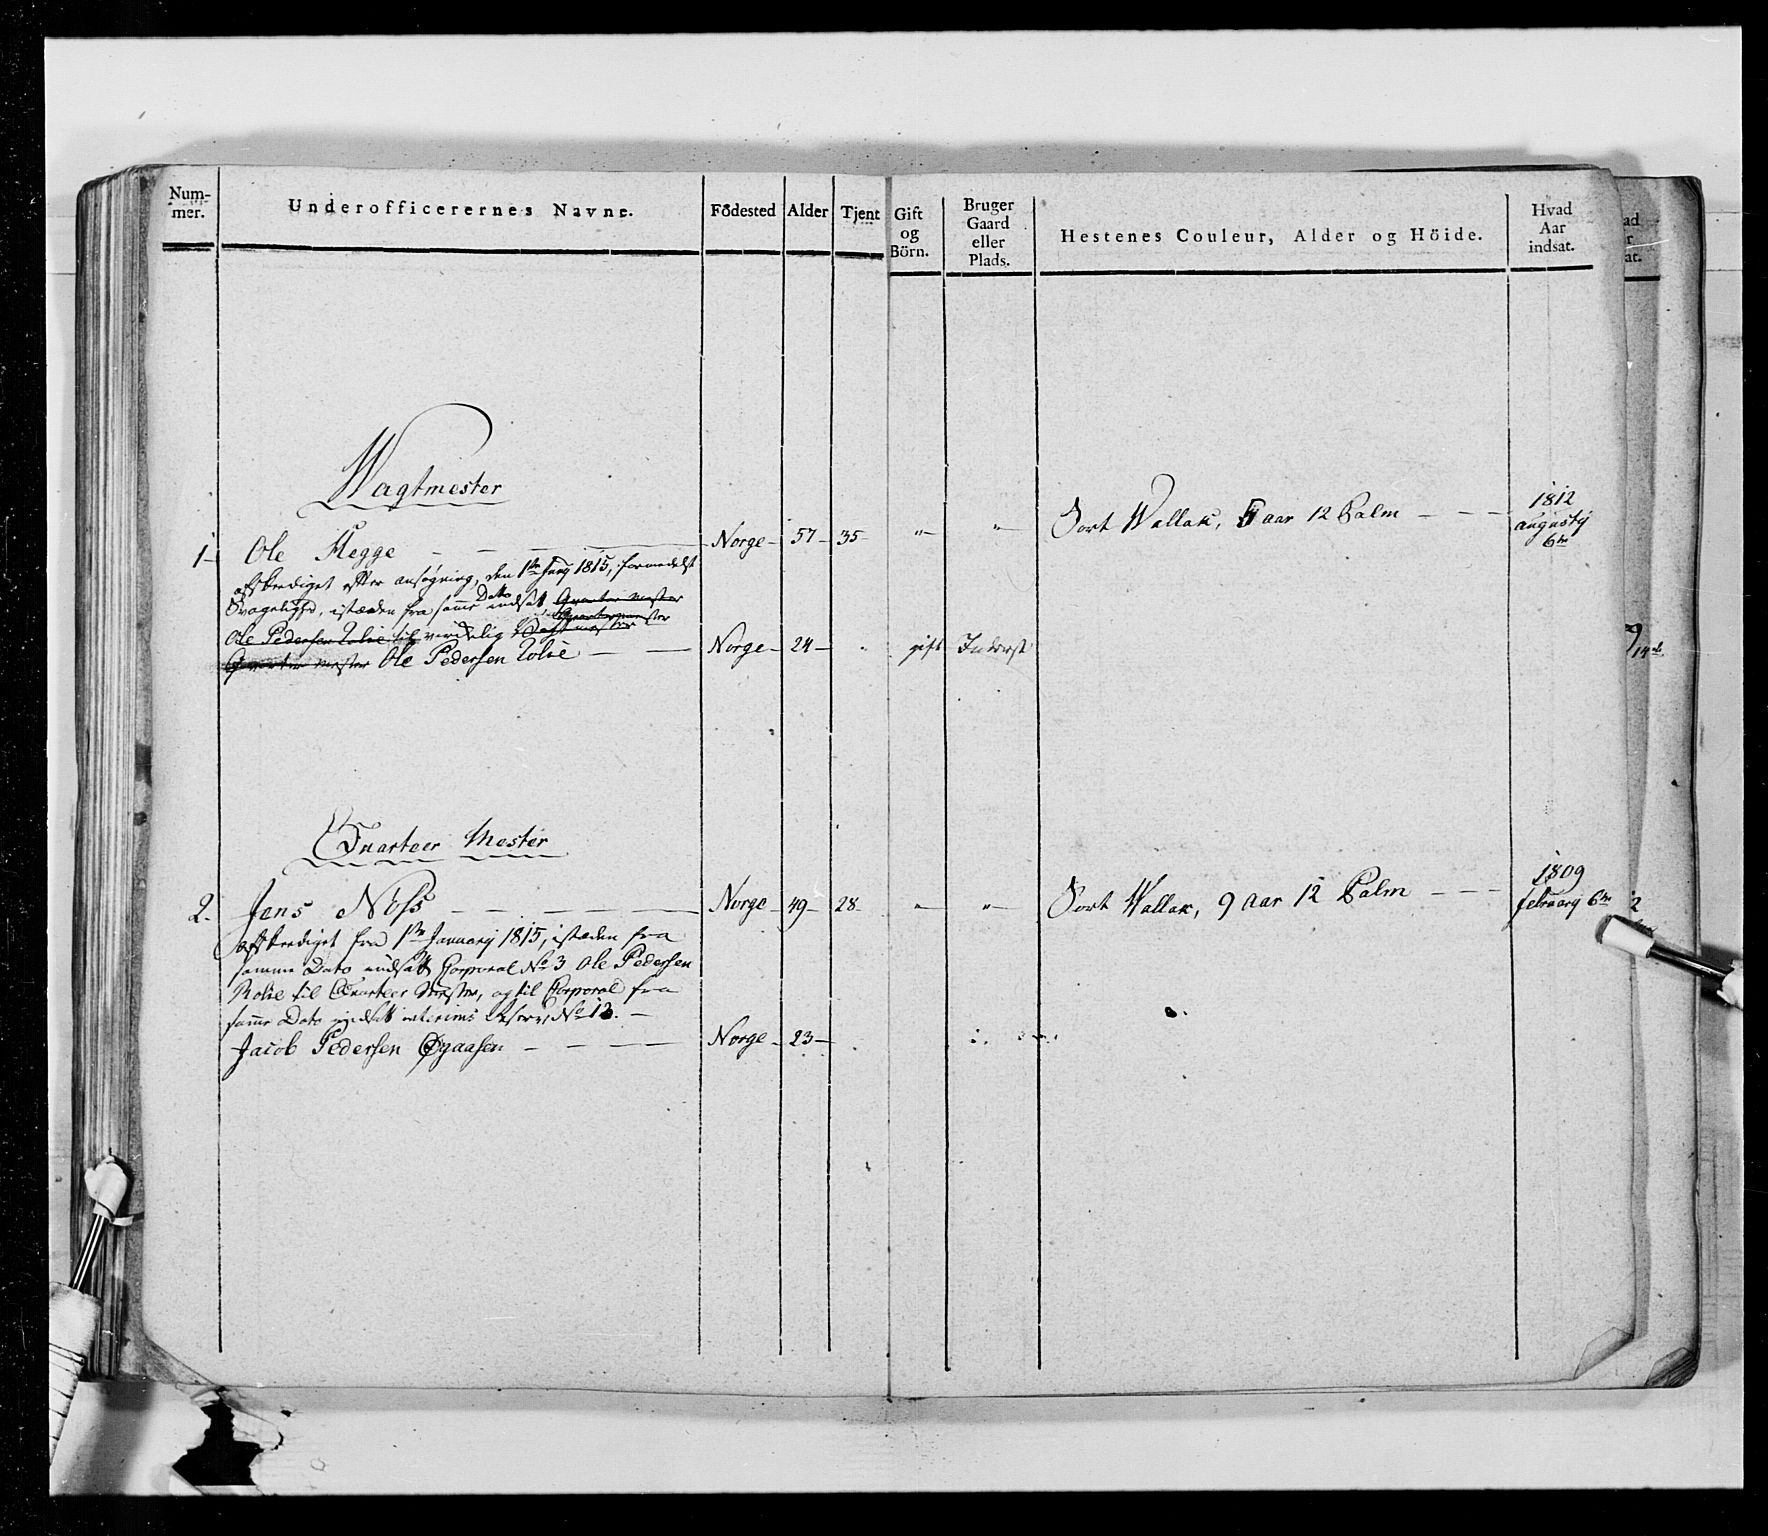 Num-
mer.
Underofficerernes Navne.
Födested
Alder
Tjent
Gift
og
Börn.
Bruger
Gaard
eller
Plads.
Hestenes Couleur, Alder og Höide.
Hvad
Aar
indsat.
Wagtmester
1. Ole Hegge - - - - Norge- 57- 35- "- "- Sort Wallak, 5 aar 12 Palm - - - 1812 augustij 6te
afskediget efter ansøgning, den 1te Junj 1815, formedelst
Svagelighed, istæden fra samme Dato indsat Quarteer Mester
Ole Pedersen til virkelig Wagtmester
Quarteer Mester Ole Pedersen - - Norge- 24- gift Inderst
Quarteer Mester
2. Jens Noss - - - - Norge- 49- 28- "- "- Sort Wallak, 9 aar 12 Palm - - - 1809 februarij 6te
afskediget fra 1te Januarij 1815, istæden fra
samme Dato indsatt Corporal No 3 Ole Pedersen
til Quarteer Mester, og til Corporal fra
samme Dato indsatt interims No 12. -
Jacob Pedersen Øgaasen - - - - Norge- 23-